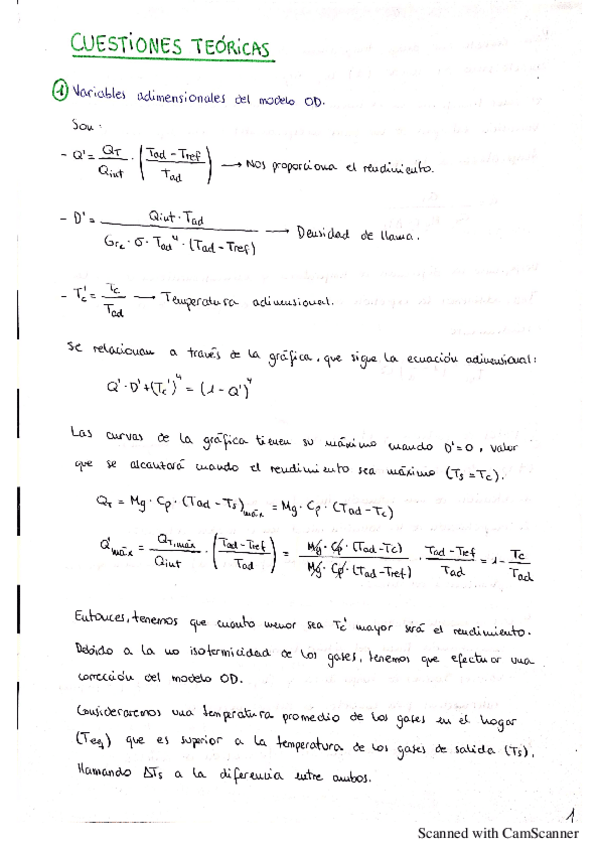 CUESTIONES TEÓRICAS
① Variables adimensionales del modelo 0D.
Son:
- Q' = QT/Qint · ((Tad - Tref)/Tad) → Nos proporciona el rendimiento.
- D' = Qint · Tad / (Grc · σ · Tad⁴ · (Tad - Tref)) → Densidad de llama.
- Tc' = Tc/Tad → Temperatura adimensional.
Se relacionan a través de la gráfica, que sigue la ecuación adimensional:
Q' · D' + (Tc')⁴ = (1 - Q')⁴
Las curvas de la gráfica tienen su máximo cuando D'=0, valor
que se alcanzará cuando el rendimiento sea máximo (Ts = Tc).
QT = Mg · Cp · (Tad - Ts)máx = Mg · Cp · (Tad - Tc)
Q'máx = QT,máx/Qint · ((Tad - Tref)/Tad) = Mg · Cp · (Tad - Tc)/(Mg · Cp · (Tad - Tref)) · (Tad - Tref)/Tad = 1 - Tc/Tad
Entonces, tenemos que cuanto menor sea Tc' mayor será el rendimiento.
Debido a la no isotermicidad de los gases, tenemos que efectuar una
corrección del modelo 0D.
Consideraremos una tempratura promedio de los gases en el hogar
(Teq) que es superior a la temperatura de los gases de salida (Ts),
llamando ΔTs a la diferencia entre ambos.
1
Scanned with CamScanner